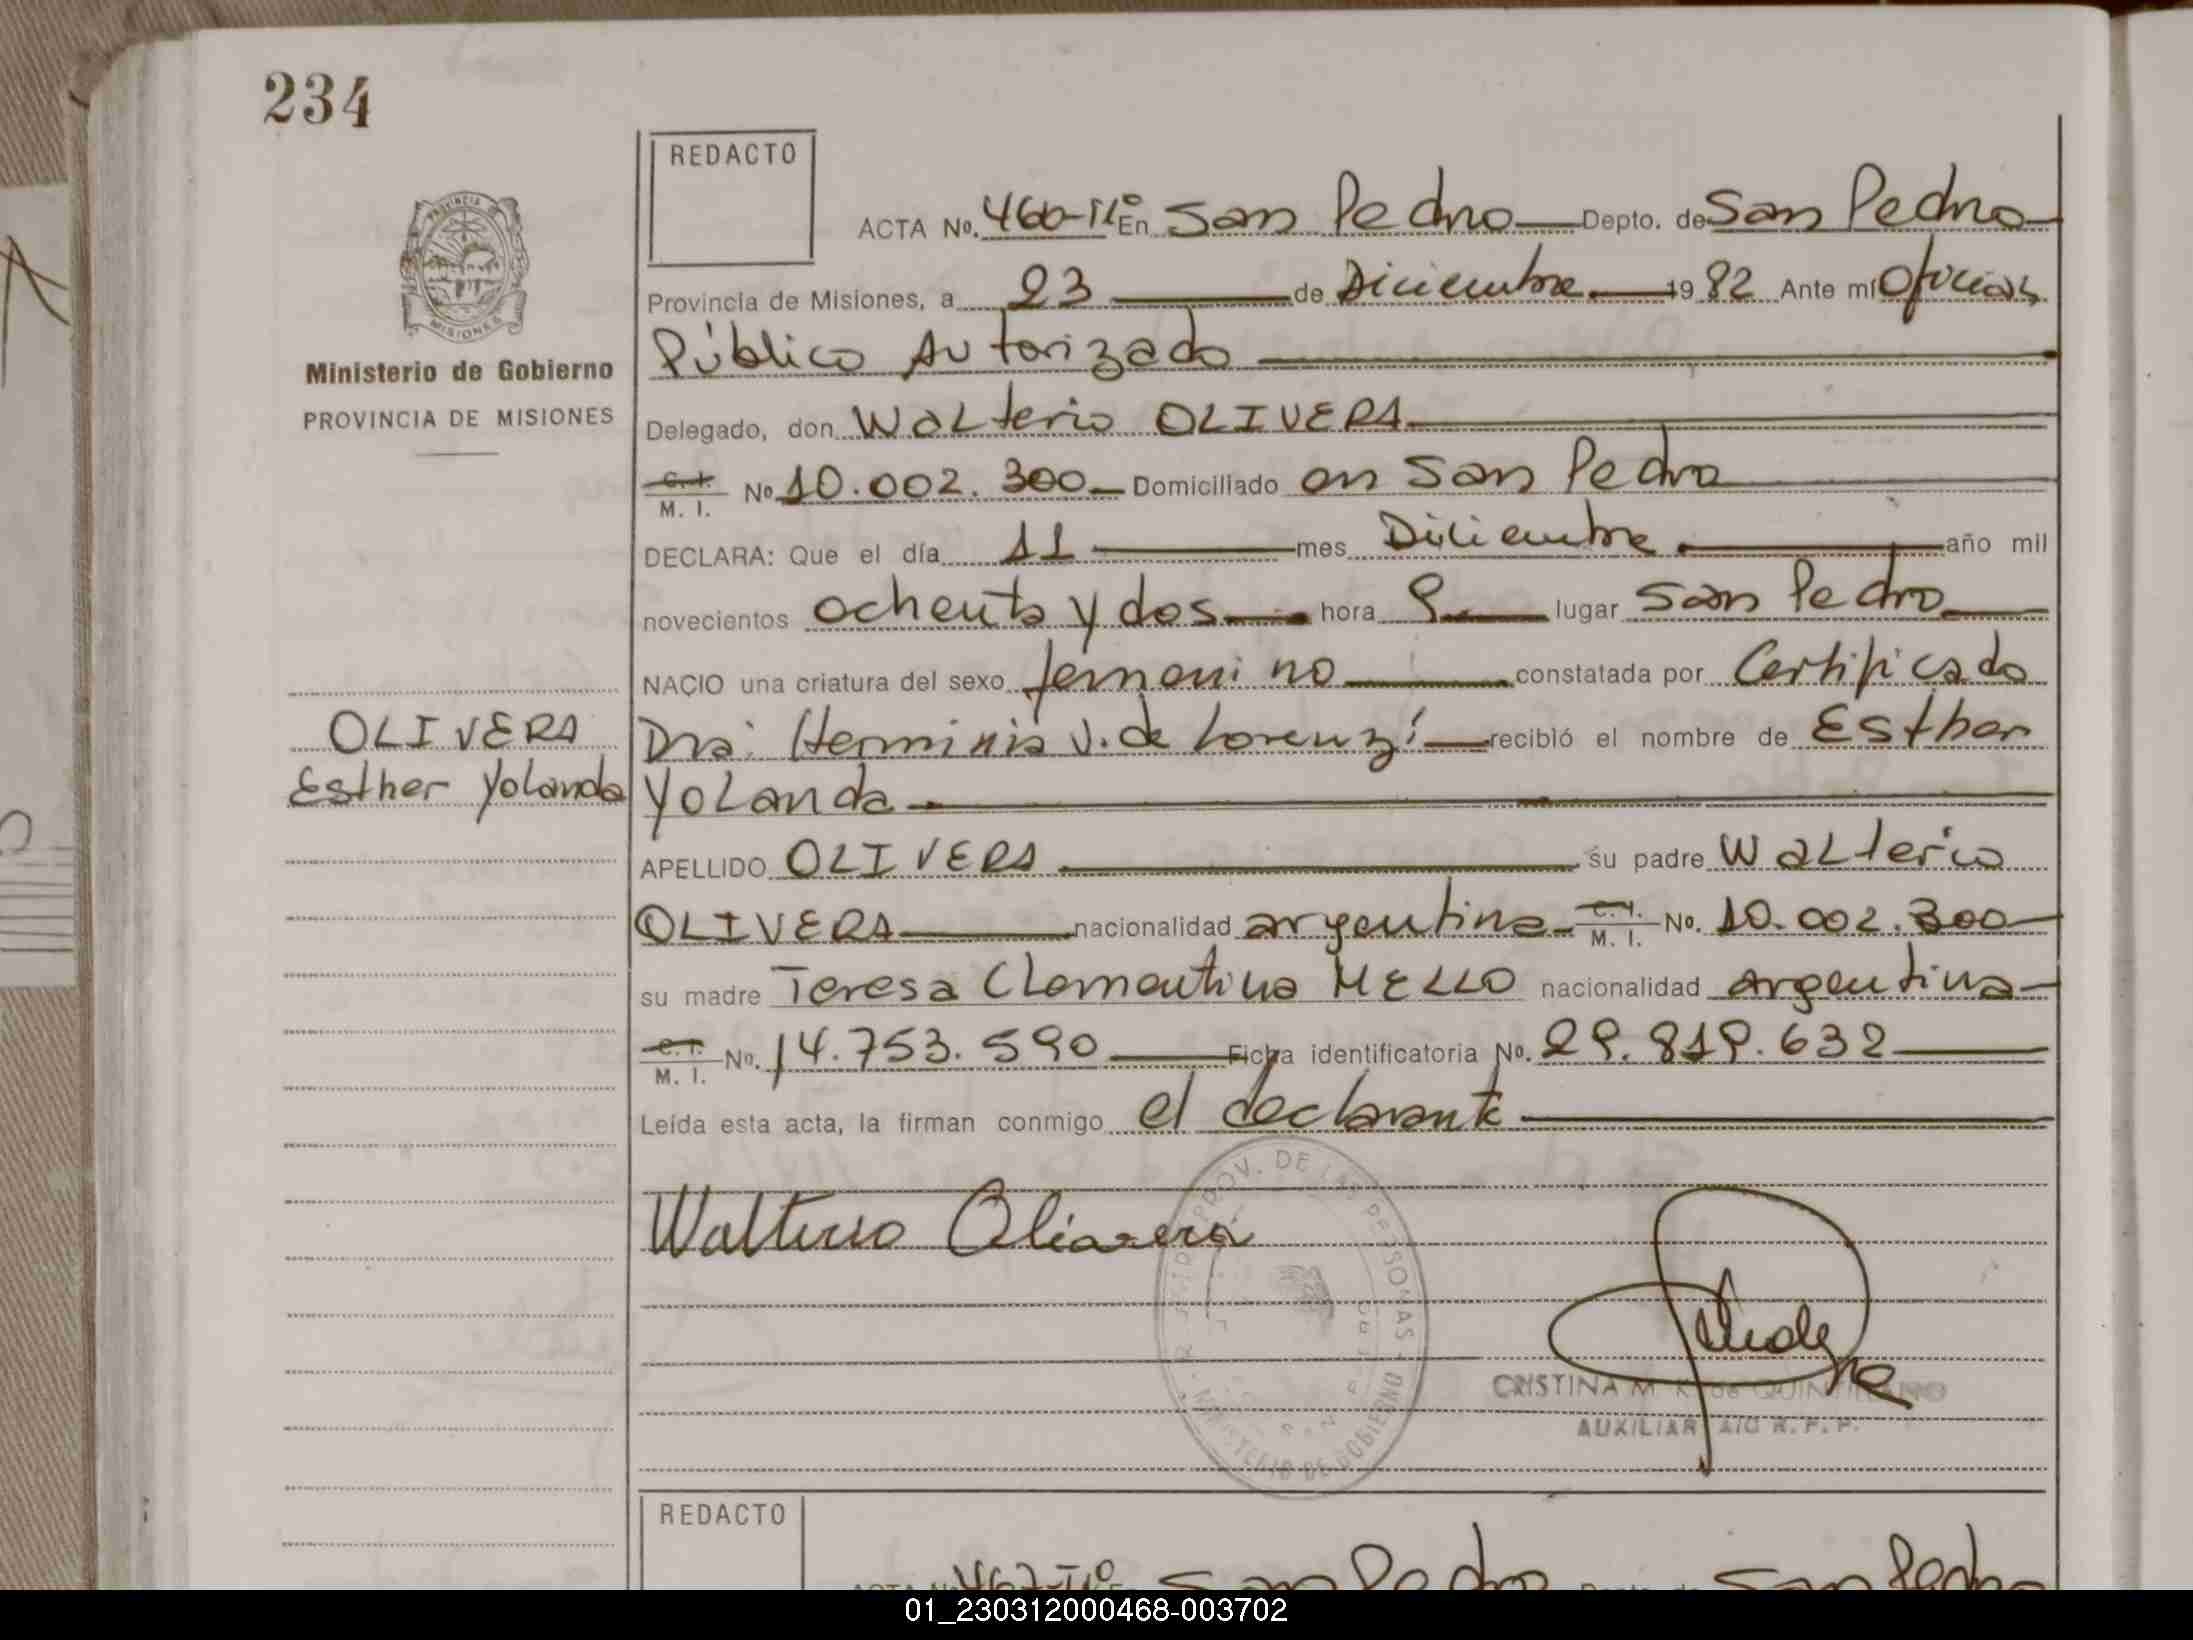 234
REDACTO
ACTA No. 466-IIº En San Pedro Depto. de San Pedro
Provincia de Misiones, a 23 de Diciembre 1982 Ante mí Oficial
Público Autorizado
Ministerio de Gobierno
PROVINCIA DE MISIONES
Delegado, don Walterio OLIVERA
C. I. M. I. No 10.002.300 Domiciliado en San Pedro
DECLARA: Que el día 11 mes Diciembre año mil
novecientos ochenta y dos hora 9 lugar San Pedro
NACIO una criatura del sexo femenino constatada por Certificado
OLIVERA
Esther Yolanda
Dra. Herminia V. de Lorenzi recibió el nombre de Esther
Yolanda
APELLIDO OLIVERA su padre Walterio
OLIVERA nacionalidad argentina C. I. M. I. No. 10.002.300
su madre Teresa Clementina MELLO nacionalidad argentina
C. I. M. I. No. 14.753.590 Ficha identificatoria No. 29.819.632
Leída esta acta, la firman conmigo el declarante
Walterio Olivera
PROV. DE LAS PERSONAS
MINISTERIO DE GOBIERNO
CRISTINA M. K. de QUINTANO
AUXILIAR A/C R. P. P.
REDACTO
467-IIº En San Pedro Depto. de San Pedro
01_230312000468-003702